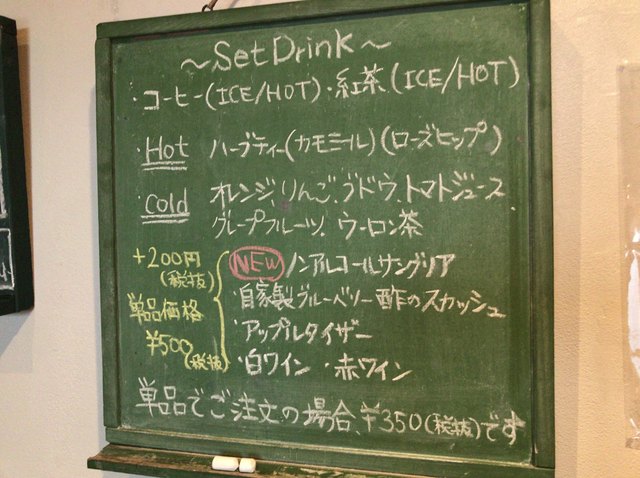 ～Set Drink～
・コーヒー(ICE/HOT)・紅茶(ICE/HOT)
・Hot ハーブティー(カモミール)(ローズヒップ)
・Cold オレンジ、りんご、ブドウ、トマトジュース
グレープフルーツ、ウーロン茶
+200円
(税抜)
単品価格
¥500(税抜)
NEW ノンアルコールサングリア
・自家製ブルーベリー酢のスカッシュ
・アップルタイザー
・白ワイン ・赤ワイン
単品でご注文の場合、¥350(税抜)です